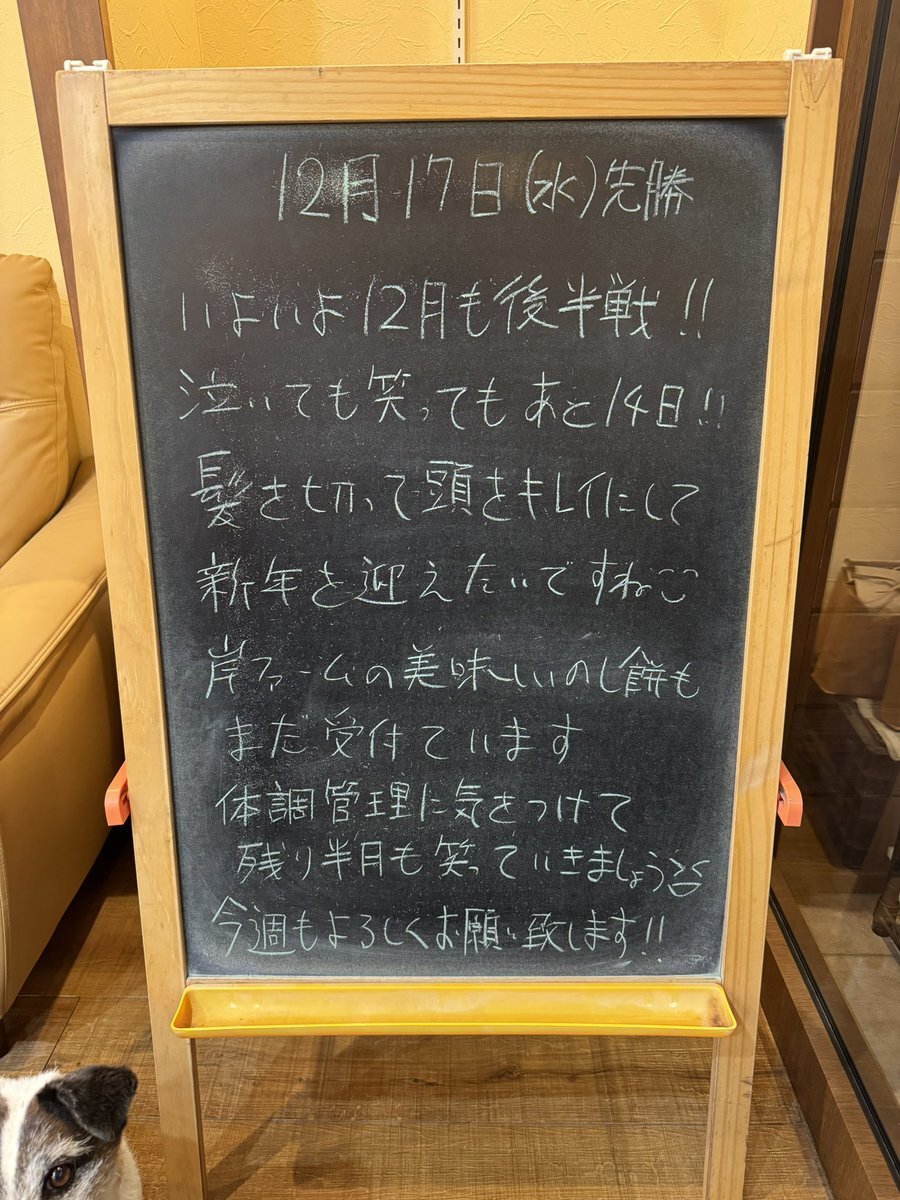 12月17日(水)先勝
いよいよ12月も後半戦!!
泣いても笑ってもあと14日!!
髪を切って頭をキレイにして
新年を迎えたいですねここ
岸ファームの美味しいのし餅も
まだ受付ています
体調管理に気をつけて
残り半月も笑っていきましょう
今週もよろしくお願い致します!!